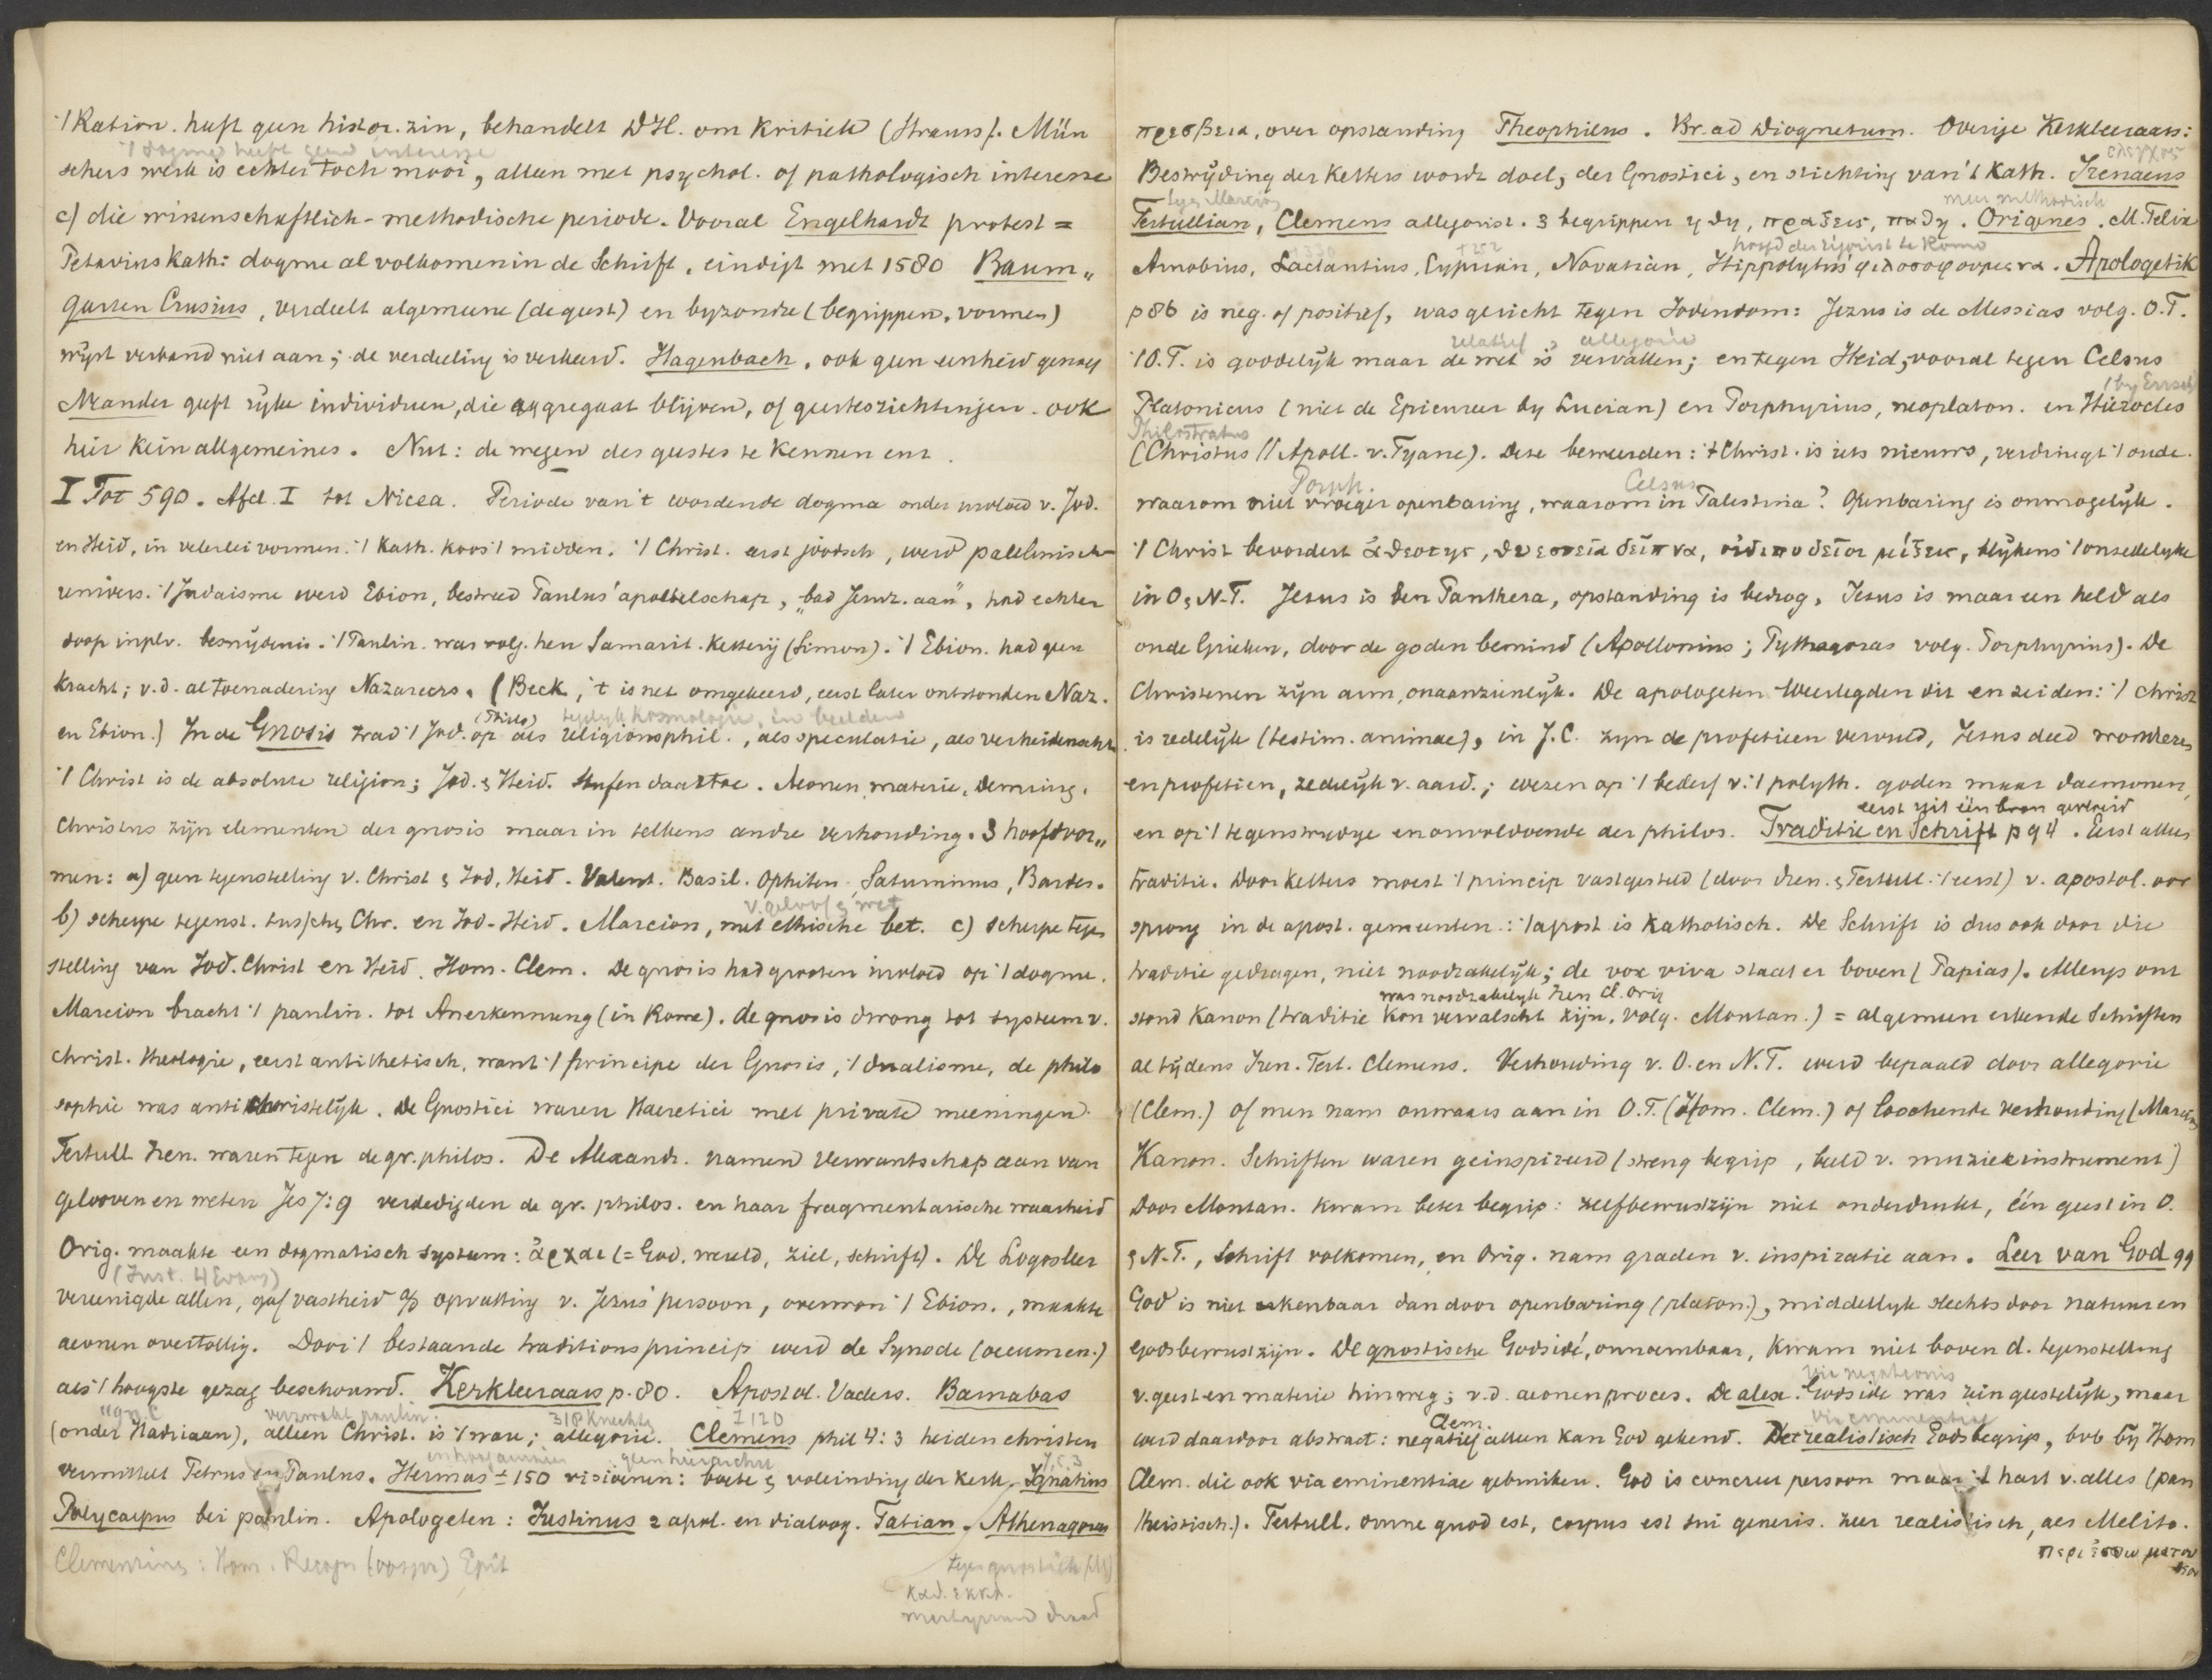 't Ration. heeft geen histor. zin, behandelt D.H. om Kritiek (Strauss). Mün
't dogma heeft geen interesse
schers werk is echter toch mooi, alleen met psychol. of pathologisch interesse
c) die wissenschaftlich-methodische periode. Vooral Engelhardt protest =
Petavius Kath: dogme al volkomen in de Schrift, eindigt met 1580 Baum„
garten Crusius, verdeelt algemeene (de geest) en byzondre (begrippen, vormen)
wijst verband niet aan; de verdeeling is verkeerd. Hagenbach, ook geen eenheid genoeg
Neander geeft rijke individuen, die aggregaat blijven, of geestesrichtingen. ook
hier kein allgemeines. Nut: de wegen des geestes te kennen enz.
I Tot 590. Afd. I tot Nicea. Periode van 't wordende dogma onder invloed v. Jod.
en Heid, in velerlei vormen. 't Kath. koos 't midden. 't Christ. eerst joodsch, werd paulinisch
univers. 't Judaisme werd Ebion, bestreed Paulus' apostelschap, „bad Jeruz. aan”, had echter
doop in plv. besnydenis. 't Paulin. was volg. hen Samarit. Ketterij (Simon). 't Ebion. had geen
kracht; v.d. al toenadering Nazareers. (Beck, 't is net omgekeerd, eerst later ontstonden Naz.
(Philo) kosmologie, in beelden
en Ebion.) In de Gnosis trad 't Jod. op als religionsphil., als speculatie, als verheidenscht
't Christ is de absolute religion; Jod. & Heid. Stufen daartoe. Aeonen, materie, Demiurg,
Christus zijn elementen der gnosis maar in telkens andre verhouding. 3 hoofdvor„
men: a) geen tegenstelling v. Christ & Jod, Heid. Valent. Basil. Ophiten Saturninus, Bardes.
v. geloof & wet
b) scherpe tegenst. tusschen Chr. en Jod-Heid. Marcion, met ethische bet. c) scherpe tegen
stelling van Jod. Christ en Heid. Hom. Clem. De gnosis had grooten invloed op 't dogme.
Marcion bracht 't paulin. tot Anerkennung (in Rome). de gnosis drong tot systeem v.
christ. theologie, eerst antithetisch, want 't principe der Gnosis, 't dualisme, de philo
sophie was antichristelijk. De Gnostici waren Haeretici met private meeningen.
Tertull Iren. waren tegen de gr. philos. De Alexandr. namen verwantschap aan van
gelooven en weten Jes 7:9 verdedigden de gr. philos. en haar fragmentarische waarheid
Orig. maakte een dogmatisch systeem: ἀρχαι (= God, wereld, ziel, schrift). De Logosleer
(Just. 4 Evang)
vereenigde allen, gaf vastheid a/d opvatting v. Jezus' persoon, overwon 't Ebion., maakte
aeonen overtollig. Door 't bestaande traditionsprincip werd de Synode (oecumen.)
als 't hoogste gezag beschouwd. Kerkleeraars p. 80. Apostol. Vaders. Barnabas
verzwakt paulin. 318 Knechte I 120
(onder Hadriaan), alleen Christ. is 't ware; allegorie. Clemens phil 4:3 heiden christen
geen hierarchie
vermittelt Petrus en Paulus. Hermas ± 150 visioenen: boete & voleinding der kerk. Ignatius
Polycarpus bei paulin. Apologeten: Justinus 2 apol. en dialoog. Tatian. Athenagoras
Clementins: Hom. Recogn (oorspr) Epit
tegen gnostiek
καθ. εκκλ.
martyrium
πρεσβεια, over opstanding Theophilus. Br. ad Diognetum. Overige Kerkleeraars:
ελεγχος
Bestrijding der Ketters wordt doel, der Gnostici, en stichting van 't Kath. Irenaeus
tegen Marcion meer methodisch
Tertullian, Clemens allegorist. 3 begrippen ηθη, πραξεις, παθη. Origenes. M. Felix
† 330 † 252 hoofd der te Rome
Arnobius, Lactantius, Cyprian, Novatian, Hippolytus' φιλοσοφουμενα. Apologetik
p 86 is neg. of positief, was gericht tegen Jodendom: Jezus is de Messias volg. O.T.
relatief, allegorie
't O.T. is goddelijk maar de wet is vervallen; en tegen Heid, vooral tegen Celsus
Platonicus (niet de Epicureer by Lucian) en Porphyrius, neoplaton. en Hierocles
Philostratus
(Christus // Apoll. v. Tyane). Deze beweerden: 't Christ. is iets nieuws, verdringt 't oude.
Porph. Celsus
waarom niet vroeger openbaring, waarom in Palestina? Openbaring is onmogelijk.
't Christ bevordert ἀθεοτης, θυεστεῖα δεῖπνα, οἰδιποδεῖοι μίξεις, blijkens 't onzedelyke
in O & N.T. Jesus is ben Panthera, opstanding is bedrog, Jesus is maar een held als
oude Grieken, door de goden bemind (Apollonius; Pythagoras volg. Porphyrius). De
Christenen zijn arm, onaanzienlijk. De apologeten weerlegden dit en zeiden: 't christ
is redelijk (testim. animae), in J.C. zyn de profetieen vervuld, Jezus deed wonderen
en profetien, zedelijk v. aard.; wezen op 't bederf v. 't polyth. goden maar daemonen,
eerst uit één bron gevloeid
en op 't tegenstrydge en onvoldoende der philos. Traditie en Schrift p 94. Eerst alles
traditie. Door Ketters moest 't princip vastgesteld (door Iren. & Tertull. 't eerst) v. apostol. oor
sprong in de apost. gemeenten: 't apost is Katholisch. De Schrift is dus ook door die
traditie gedragen, niet noodzakelijk; de vox viva staat er boven (Papias). Allengs ont
was noodzakelyk Iren Cl. Orig
stond Kanon (traditie kon vervalscht zijn, volg. Montan.) = algemeen erkende Schriften
al tijdens Iren. Tert. Clemens. Verhouding v. O. en N.T. werd bepaald door allegorie
(Clem.) of men nam onwaars aan in O.T. (Hom. Clem.) of loochende verhouding (Marcion
Kanon. Schriften waren geinspireerd (streng begrip, beeld v. muziekinstrument)
Door Montan. kwam beter begrip: zelfbewustzijn niet onderdrukt, één geest in O.
& N.T., Schrift volkomen, en Orig. nam graden v. inspiratie aan. Leer van God 99
God is niet kenbaar dan door openbaring (platon.), middellijk slechts door natuur en
Godsbewustzijn. De gnostische Godsidé, onnoembaar, kwam niet boven d. tegenstelling
via negationis
v. geest en materie hinweg; v.d. aeonenproces. De alex. Godsidé was rein geestelijk, maar
Clem. via eminentiae
werd daardoor abstract: negatief alleen kan God gekend. Het realistisch Godsbegrip, bvb bij Hom
Clem. die ook via eminentiae gebruiken. God is concreet persoon maar 't hart v. alles (pan
theistisch.). Tertull. omne quod est, corpus est sui generis. zeer realistisch, als Melito.